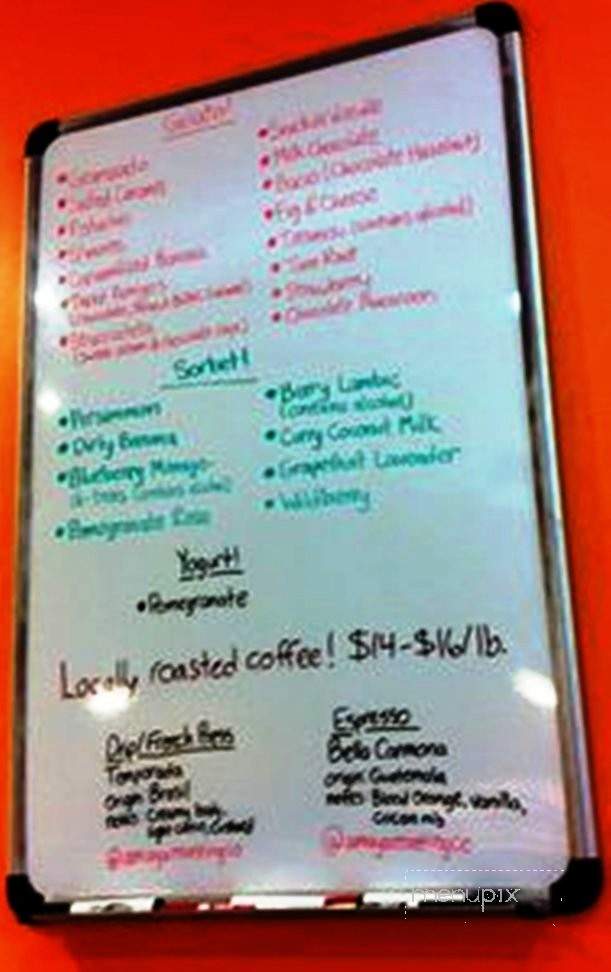 Gelato!
• Salted Caramel
• Pistachio
• Caramelized Banana
• Stracciatella
• Snickerdoodle
• Milk Chocolate
• Bacio (Chocolate Hazelnut)
• Fig & Cheese
• Tiramisu (contains alcohol)
• Strawberry
• Chocolate Macaroon
Sorbet!
• Persimmon
• Dirty Banana
• Blueberry Mango-
contains alcohol)
• Pomegranate Rose
• Berry Lambic
(contains alcohol)
• Curry Coconut Milk
• Grapefruit Lavender
• Wildberry
Yogurt!
• Pomegranate
Locally roasted coffee! $14-$16/lb.
Drip/French Press
Temporada
origin: Brasil
notes: Creamy body,
Espresso
Bella Carmona
origin: Guatemala
notes: Blood Orange, Vanilla,
Cocoa nib
menupix